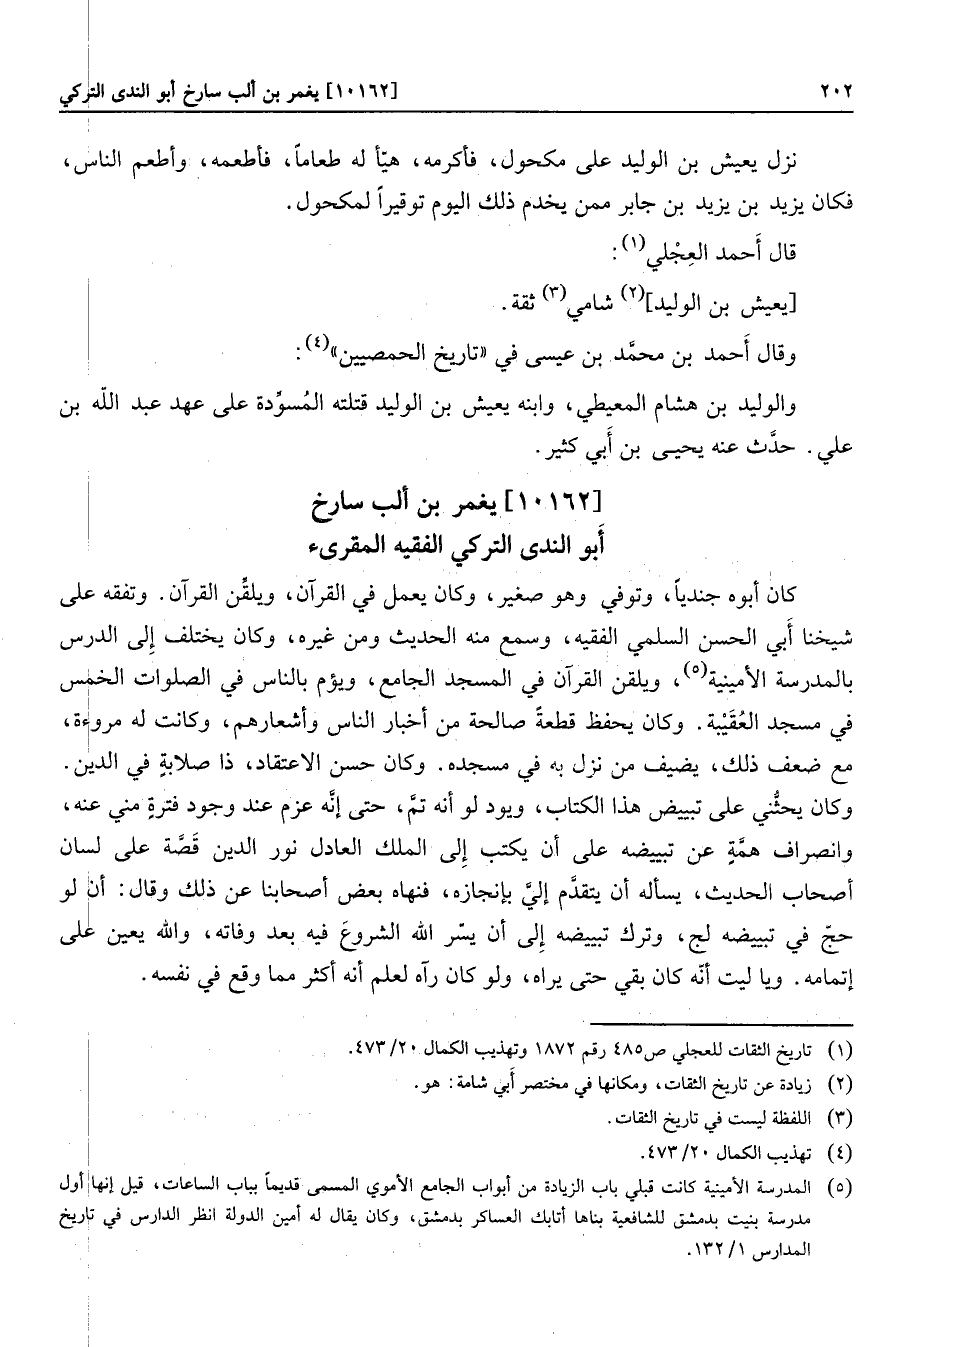 ٢٠٢
[١٠١٦٢] يغمر بن ألب سارخ أبو الندى التركي
نزل يعيش بن الوليد على مكحول، فأكرمه، هيّأ له طعاماً، فأطعمه، وأطعم الناس،
فكان يزيد بن يزيد بن جابر ممن يخدم ذلك اليوم توقيراً لمكحول.
قال أَحمد العِجْلي(١):
[يعيش بن الوليد](٢) شامي(٣) ثقة.
وقال أَحمد بن محمَّد بن عيسى في «تاريخ الحمصيين»(٤):
والوليد بن هشام المعيطي، وابنه يعيش بن الوليد قتلته المُسوِّدة على عهد عبد اللّه بن
علي. حدَّث عنه يحيـى بن أَبي كثير.
[١٠١٦٢] يغمر بن ألب سارخ
أَبو الندى التركي الفقيه المقرىء
كان أبوه جندياً، وتوفي وهو صغير، وكان يعمل في القرآن، ويلقِّن القرآن. وتفقه على
شيخنا أَبي الحسن السلمي الفقيه، وسمع منه الحديث ومن غيره، وكان يختلف إِلى الدرس
بالمدرسة الأمينية(٥)، ويلقن القرآن في المسجد الجامع، ويؤم بالناس في الصلوات الخمس
في مسجد العُقَيْبة. وكان يحفظ قطعةً صالحة من أخبار الناس وأشعارهم، وكانت له مروءة،
مع ضعف ذلك، يضيف من نزل به في مسجده. وكان حسن الاعتقاد، ذا صلابةٍ في الدين.
وكان يحثُّني على تبييض هذا الكتاب، ويود لو أنه تمَّ، حتى إنَّه عزم عند وجود فترةٍ مني عنه،
وانصراف همَّةٍ عن تبييضه على أن يكتب إِلى الملك العادل نور الدين قَصَّة على لسان
أصحاب الحديث، يسأله أن يتقدَّم إليَّ بإنجازه، فنهاه بعض أصحابنا عن ذلك وقال: أن لو
حجّ في تبييضه لج، وترك تبييضه إِلى أن يسّر الله الشروعَ فيه بعد وفاته، والله يعين على
إتمامه. ويا ليت أنّه كان بقي حتى يراه، ولو كان رآه لعلم أنه أكثر مما وقع في نفسه.
(١) تاريخ الثقات للعجلي ص٤٨٥ رقم ١٨٧٢ وتهذيب الكمال ٢٠/ ٤٧٣.
(٢) زيادة عن تاريخ الثقات، ومكانها في مختصر أَبي شامة: هو.
(٣) اللفظة ليست في تاريخ الثقات.
(٤) تهذيب الكمال ٢٠/ ٤٧٣.
(٥) المدرسة الأمينية كانت قبلي باب الزيادة من أبواب الجامع الأموي المسمى قديماً بباب الساعات، قيل إنها أول
مدرسة بنيت بدمشق للشافعية بناها أتابك العساكر بدمشق، وكان يقال له أمين الدولة انظر الدارس في تاريخ
المدارس ١/ ١٣٢.